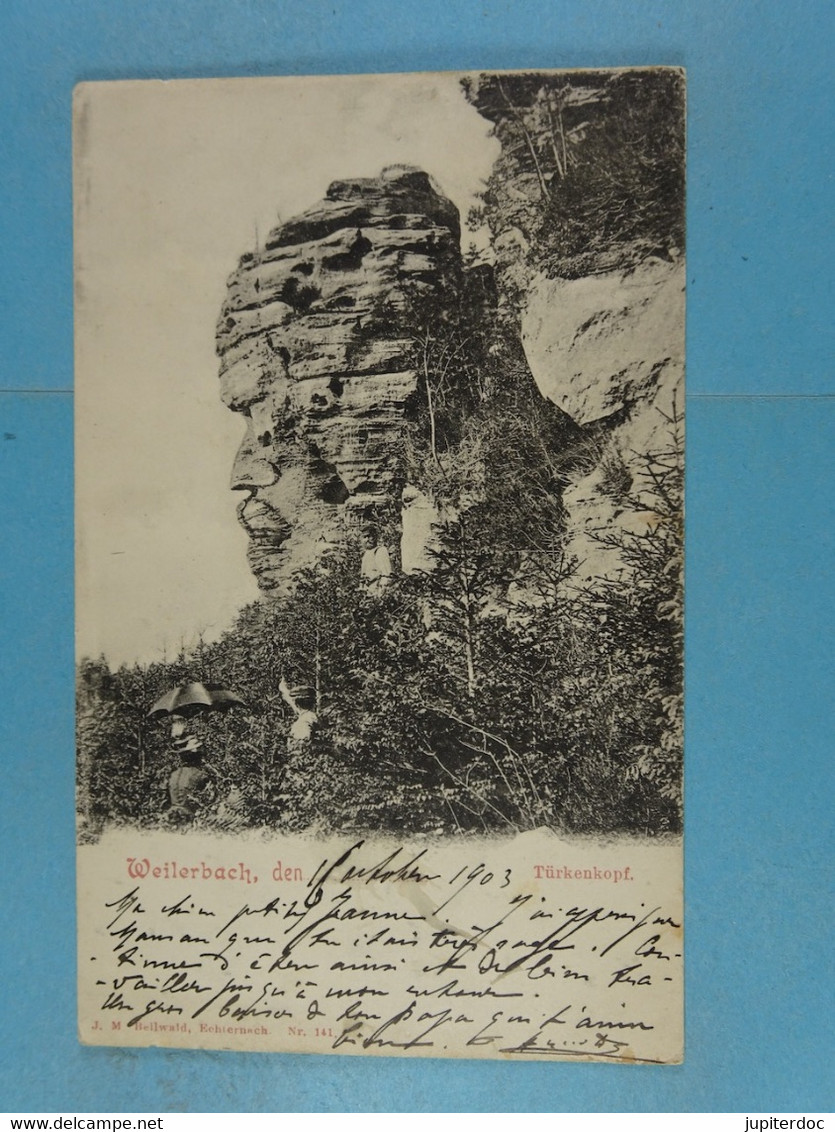 Weilerbach, den 1 Octobre 1903 Türkenkopf.
Ma chère petite Jeanne. J'ai appris par
Maman que tu étais très sage. Con-
- tinue d'être ainsi et de bien tra-
- vailler jusqu'à mon retour.
Un gros baiser de ton papa qui t'aime
bien.
J. M. Bellwald, Echternach. Nr. 141
www.delcampe.net
jupiterdoc